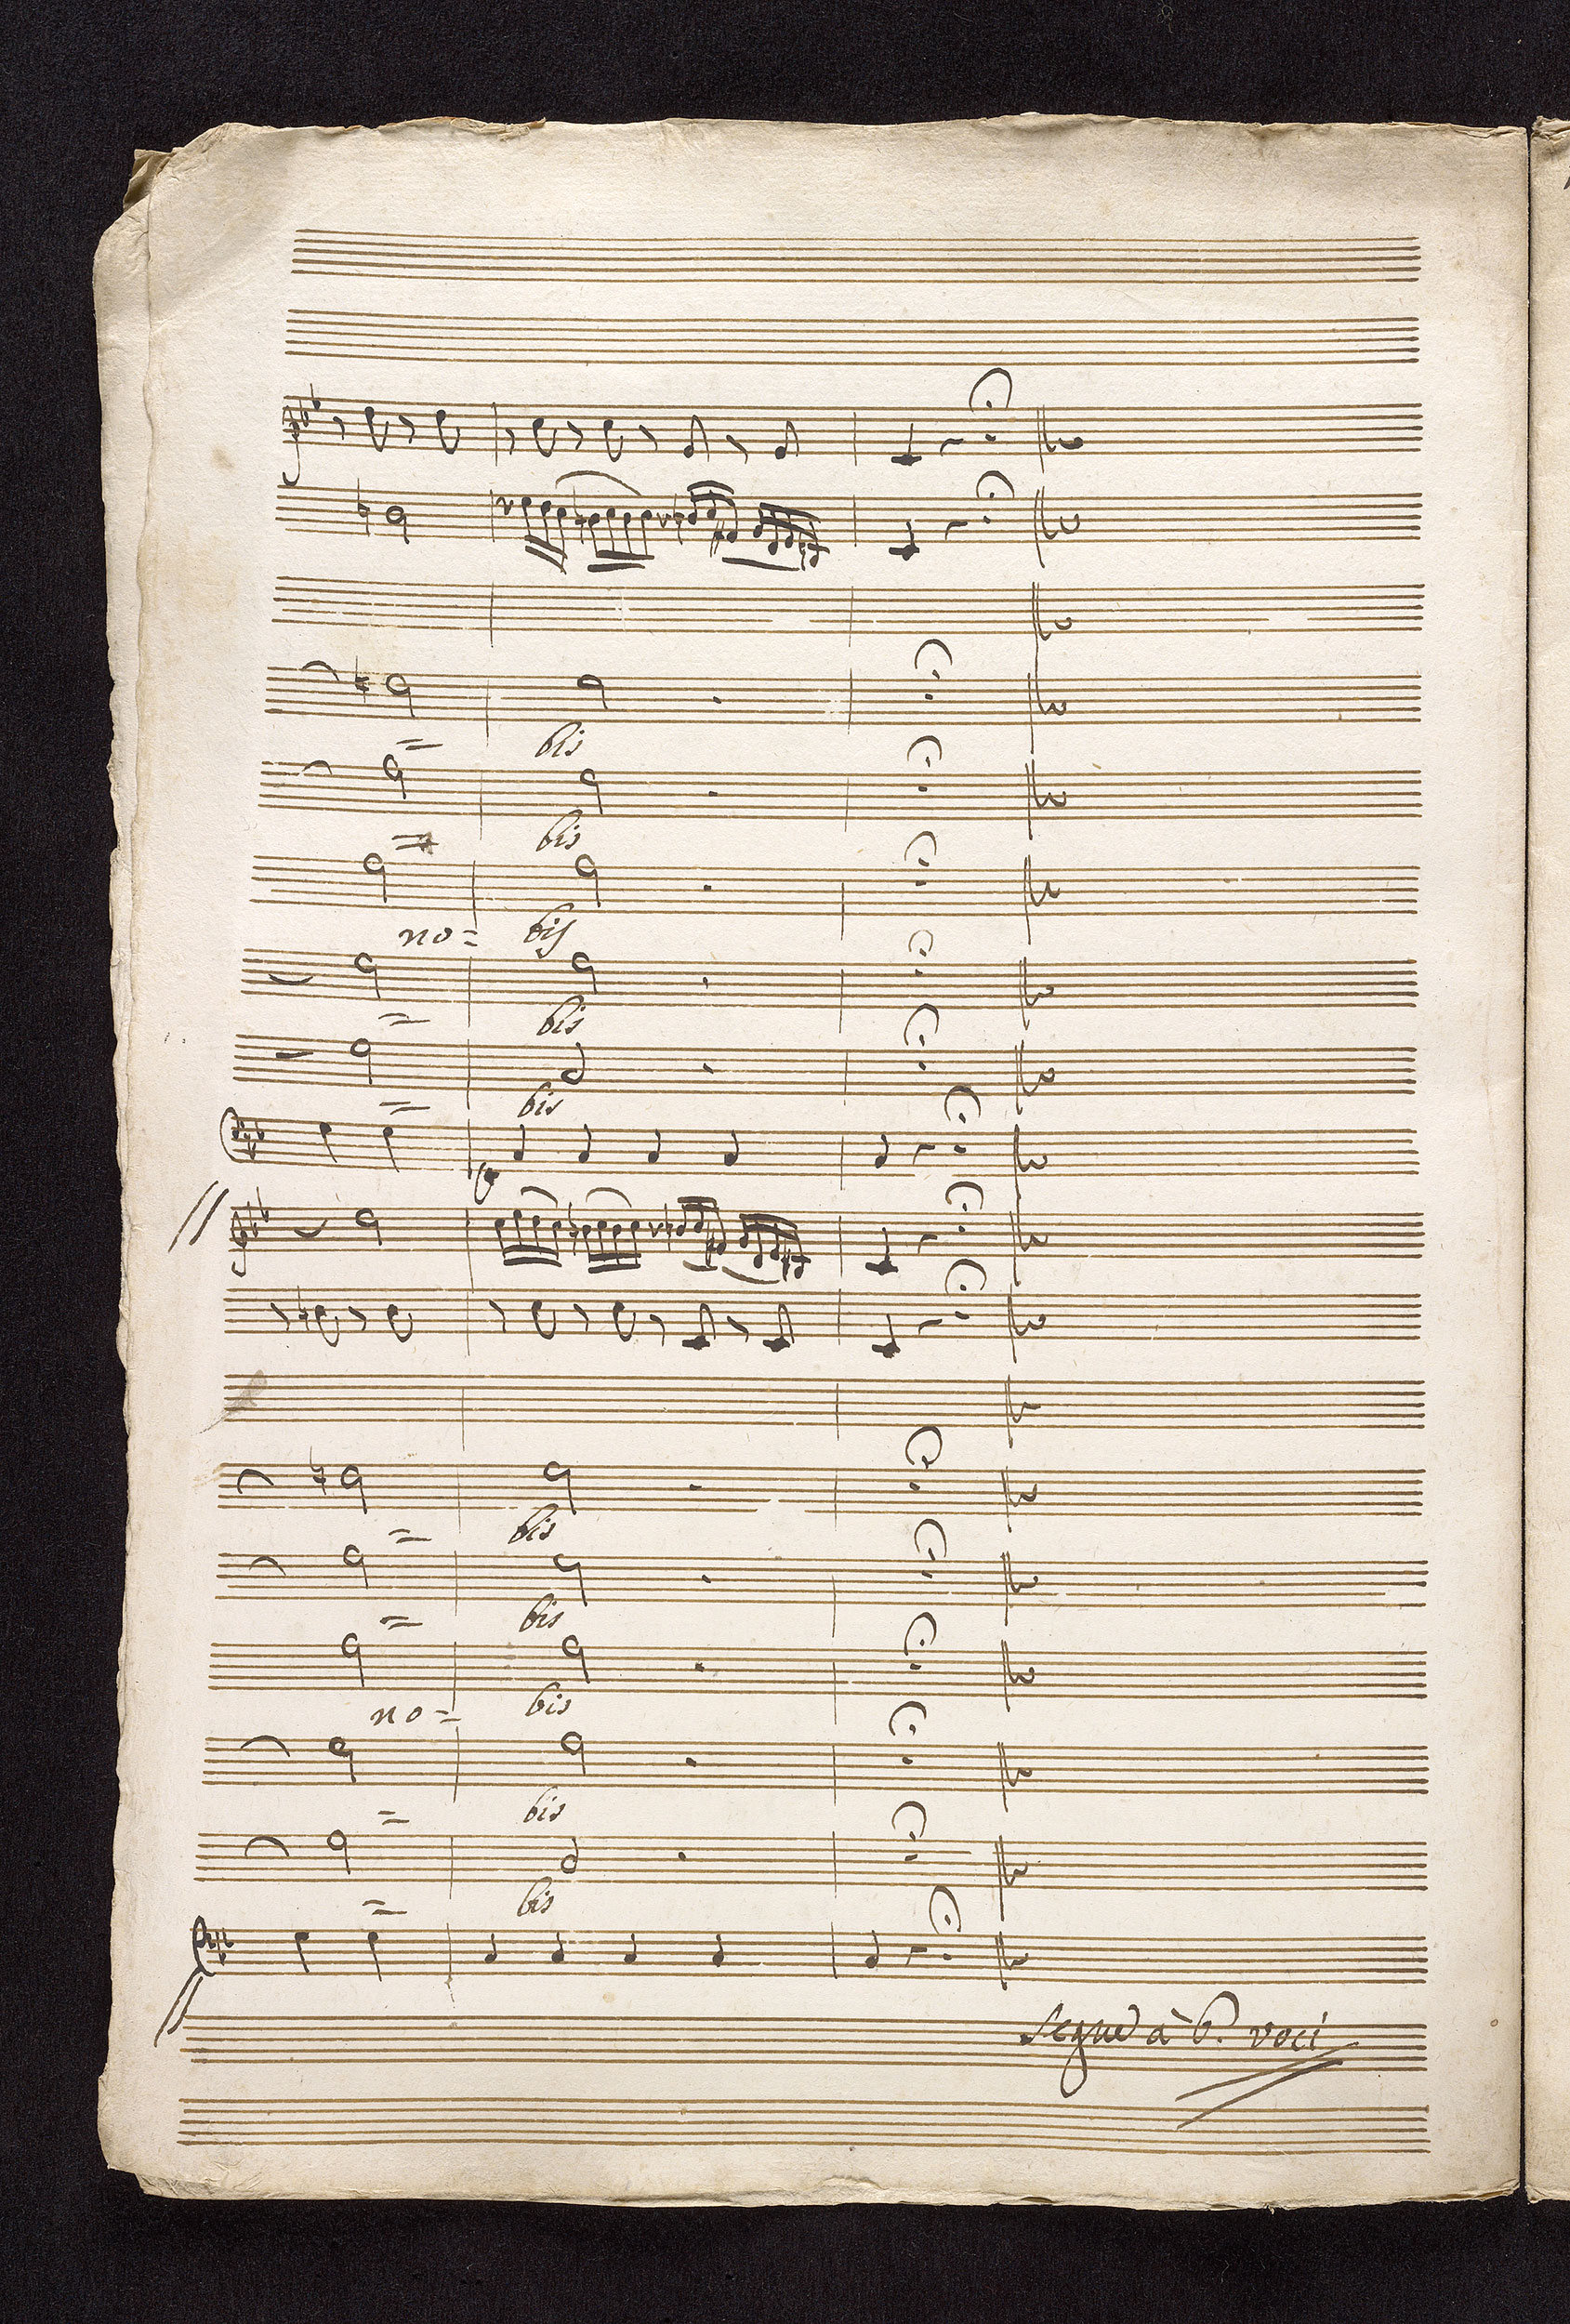 = bis
= bis
no= bis
= bis
= bis
= bis
= bis
no= bis
= bis
= bis
Segue à 6. voci